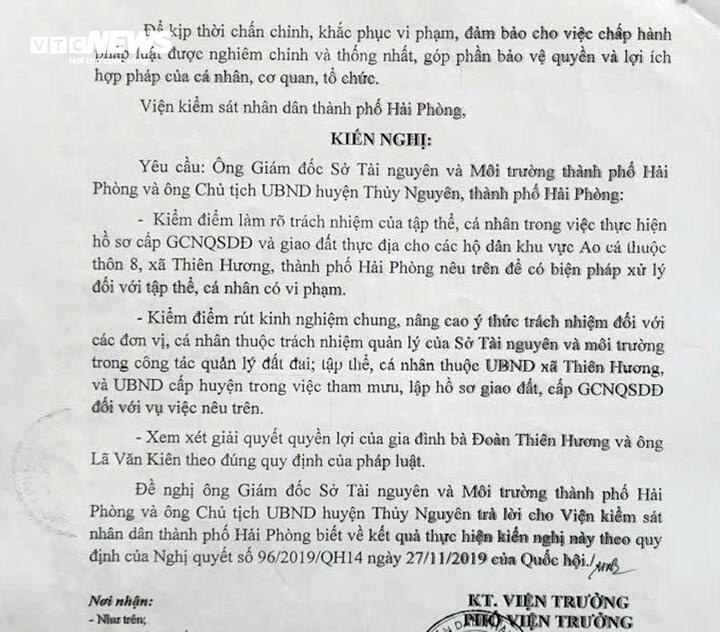 Để kịp thời chấn chỉnh, khắc phục vi phạm, đảm bảo cho việc chấp hành
VTC NEWS
pháp luật được nghiêm chỉnh và thống nhất, góp phần bảo vệ quyền và lợi ích
hợp pháp của cá nhân, cơ quan, tổ chức.
Viện kiểm sát nhân dân thành phố Hải Phòng,
KIẾN NGHỊ:
Yêu cầu: Ông Giám đốc Sở Tài nguyên và Môi trường thành phố Hải
Phòng và ông Chủ tịch UBND huyện Thủy Nguyên, thành phố Hải Phòng:
- Kiểm điểm làm rõ trách nhiệm của tập thể, cá nhân trong việc thực hiện
hồ sơ cấp GCNQSDĐ và giao đất thực địa cho các hộ dân khu vực Ao cá thuộc
thôn 8, xã Thiên Hương, thành phố Hải Phòng nêu trên để có biện pháp xử lý
đối với tập thể, cá nhân có vi phạm.
- Kiểm điểm rút kinh nghiệm chung, nâng cao ý thức trách nhiệm đối với
các đơn vị, cá nhân thuộc trách nhiệm quản lý của Sở Tài nguyên và môi trường
trong công tác quản lý đất đai; tập thể, cá nhân thuộc UBND xã Thiên Hương,
và UBND cấp huyện trong việc tham mưu, lập hồ sơ giao đất, cấp GCNQSDĐ
đối với vụ việc nêu trên.
- Xem xét giải quyết quyền lợi của gia đình bà Đoàn Thiên Hương và ông
Lã Văn Kiên theo đúng quy định của pháp luật.
Đề nghị ông Giám đốc Sở Tài nguyên và Môi trường thành phố Hải
Phòng và ông Chủ tịch UBND huyện Thủy Nguyên trả lời cho Viện kiểm sát
nhân dân thành phố Hải Phòng biết về kết quả thực hiện kiến nghị này theo quy
định của Nghị quyết số 96/2019/QH14 ngày 27/11/2019 của Quốc hội./
Nơi nhận:
- Như trên;
KT. VIỆN TRƯỞNG
PHÓ VIỆN TRƯỞNG